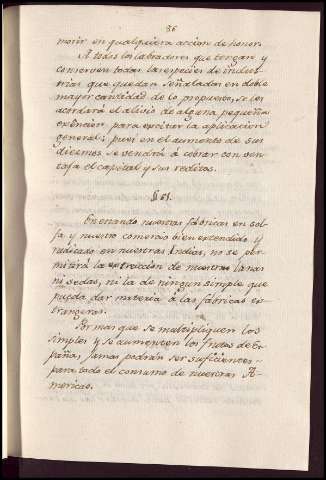 36
morir en qualquiera accion de honor.
A todos los labradores que tengan y
conserven todas las especies de indus-
trias que quedan señaladas en doble
mayor cantidad de lo propuesto, se les
acordará el alivio de alguna pequeña
exêncion, para excitar la aplicacion
general; pues en el aumento de sus
diezmos se vendrá á cobrar con ven-
taja el capital y sus reditos.
Entrando nuestras fábricas en sol-
fa y nuestro comercio bien extendido y
radicado en nuestras Indias, no se per-
mitirá la extraccion de nuestras lanas
ni sedas, ni la de ningun simple que
pueda dar materia á las fábricas ex-
trangeras.
Por mas que se multipliquen los
simples y se aumenten los frutos de Es-
paña, jamas podrán ser suficientes
para todo el consumo de nuestras A-
mericas.